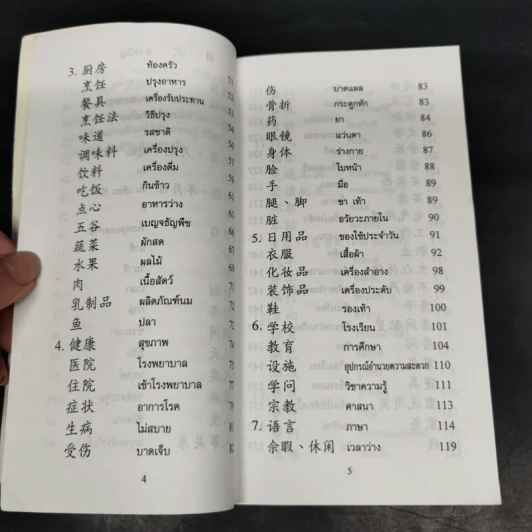 3. 厨房 ห้องครัว 51
烹饪 ปรุงอาหาร 51
餐具 เครื่องรับประทาน 52
烹饪法 วิธีปรุง
味道 รสชาติ 56
调味料 เครื่องปรุง 57
饮料 เครื่องดื่ม
吃饭 กินข้าว
点心 อาหารว่าง 61
五谷 เบญจธัญพืช
蔬菜 ผักสด
水果 ผลไม้
肉 เนื้อสัตว์
乳制品 ผลิตภัณฑ์นม 72
鱼 ปลา
4. 健康 สุขภาพ
医院 โรงพยาบาล 75
住院 เข้าโรงพยาบาล
症状 อาการโรค
生病 ไม่สบาย
受伤 บาดเจ็บ 82
4
伤 บาดแผล 83
骨折 กระดูกหัก 83
药 ยา 84
眼镜 แว่นตา 86
身体 ร่างกาย 87
脸 ใบหน้า 88
手 มือ 89
腿、脚 ขา เท้า 89
脏 อวัยวะภายใน 90
5. 日用品 ของใช้ประจำวัน 91
衣服 เสื้อผ้า 92
化妆品 เครื่องสำอาง 98
装饰品 เครื่องประดับ 99
鞋 รองเท้า 100
6. 学校 โรงเรียน 101
教育 การศึกษา 104
设施 อุปกรณ์อำนวยความสะดวก 110
学问 วิชาความรู้ 111
宗教 ศาสนา 113
7. 语言 ภาษา 114
余暇、休闲 เวลาว่าง 119
5